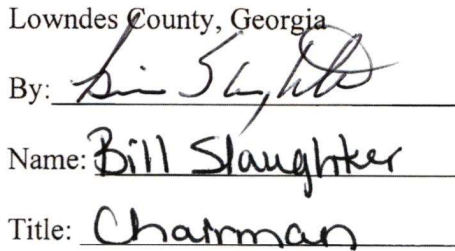 Lowndes County, Georgia
By: Bill Slaughter
Name: Bill Slaughter
Title: Chairman